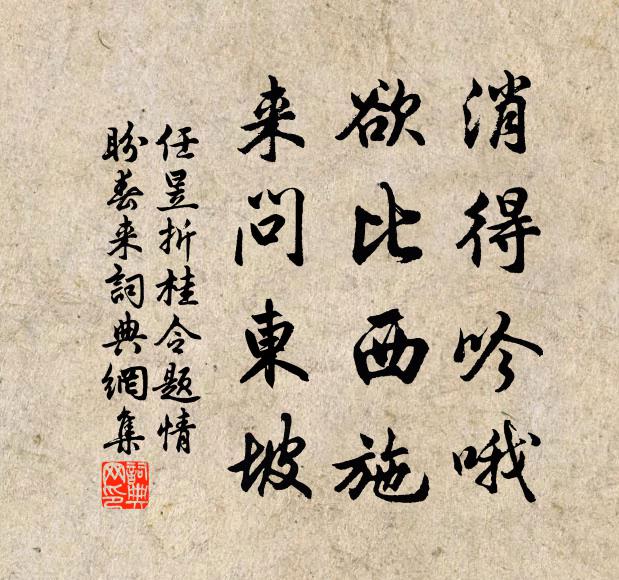 消得吟哦
欲比西施
来問東坡
任昱折桂令题情
盼春来詞典網集
詞典网印